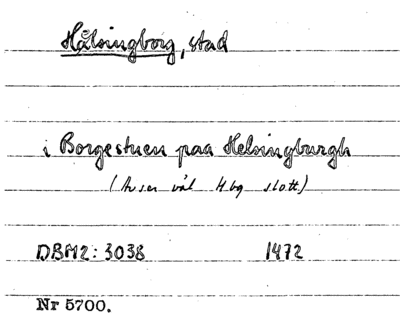 Hälsingborg, stad
i Borgestuen paa Helsingburgh
(Avser väl Hbg slott)
DBM2: 3038 1472
Nr 5700.